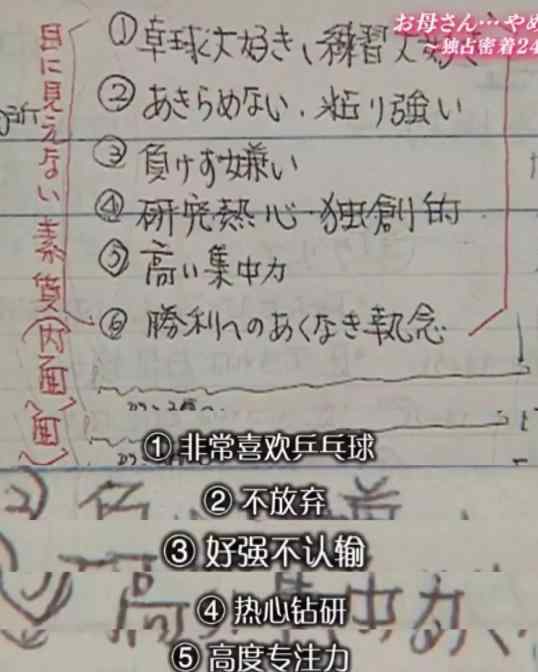 お母さん…やめ
~独占密着24
目に見えない素質(内面)
①卓球大好き、練習大
②あきらめない、粘り強い
③負けず嫌い
④研究熱心・独創的
⑤高い集中力
⑥勝利へのあくなき執念
面)
① 非常喜欢乒乓球
② 不放弃
③ 好强不认输
④ 热心钻研
高 集中力
⑤ 高度专注力